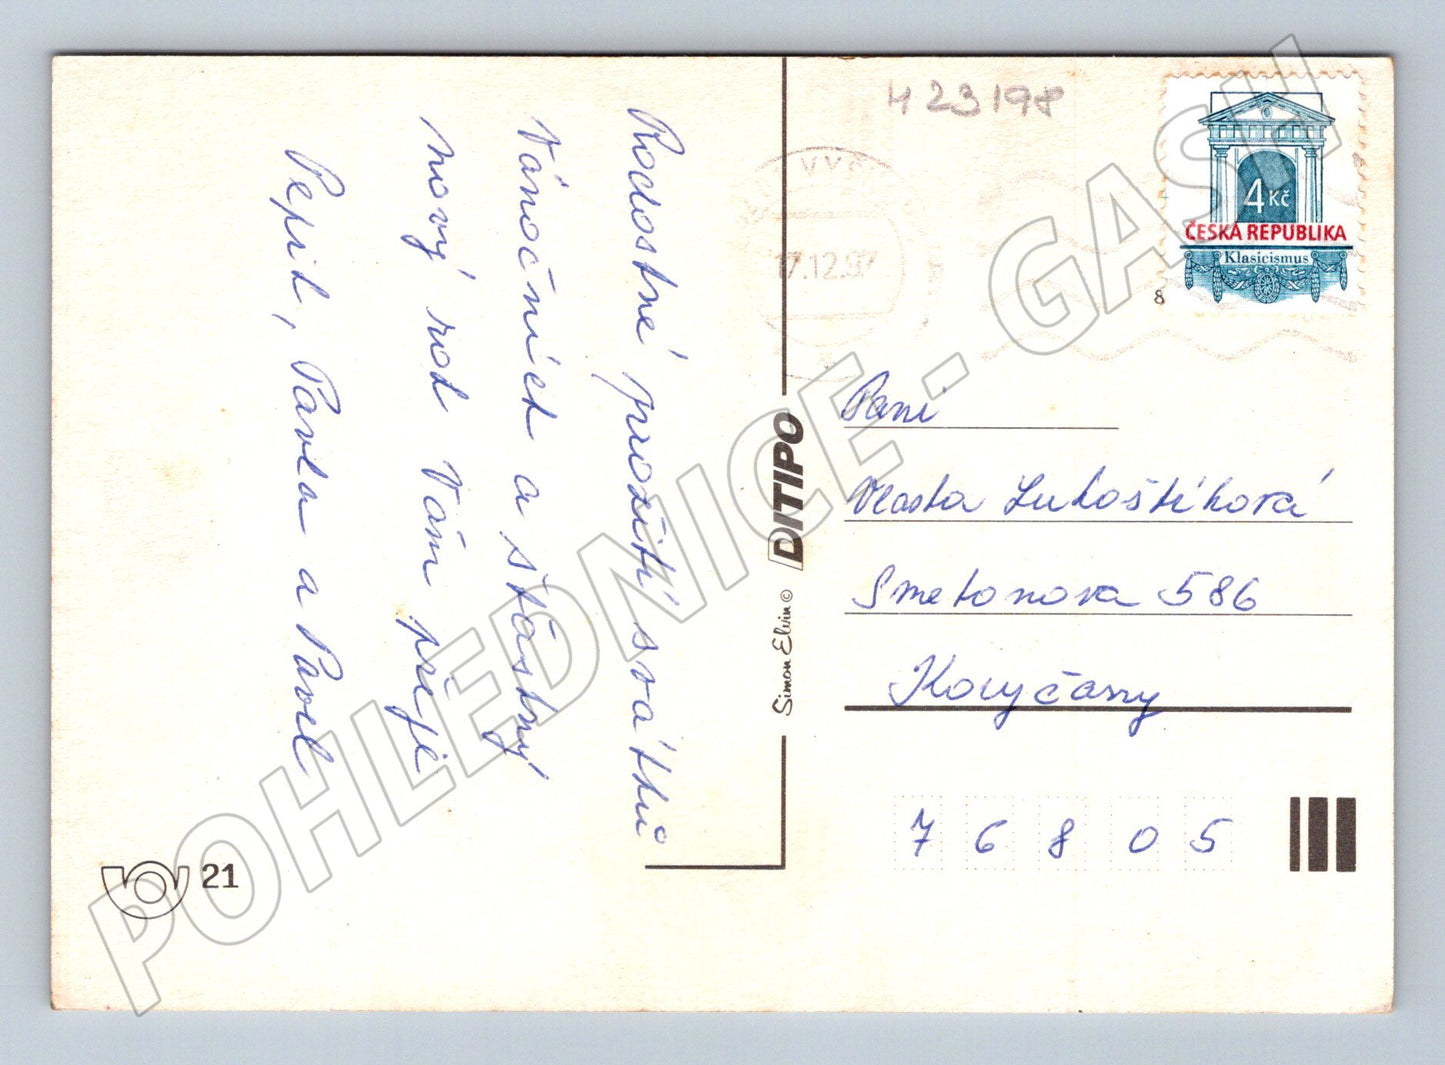 H 23198
VYŠ
17.12.97
4 Kč
ČESKÁ REPUBLIKA
Klasicismus
8
Radostné prožití svátků
Vánočních a šťastný
nový rok Vám přeje
Pepik, Pavla a Pavel
Paní
Vlasta Lukoštíková
Smetanova 586
Koryčany
76805
DITIPO
Simon Elvin ©
21
POHLEDNICE - GASH